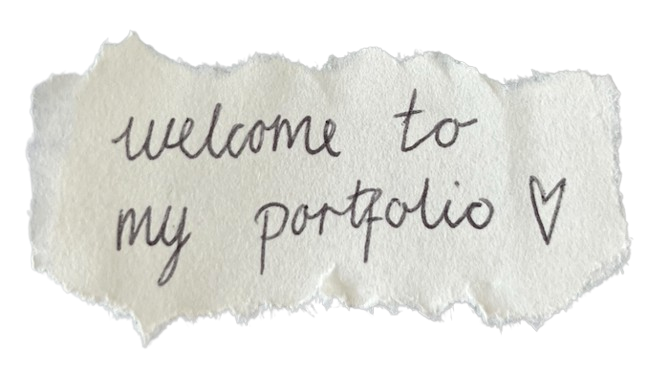 welcome to
my portfolio ♡